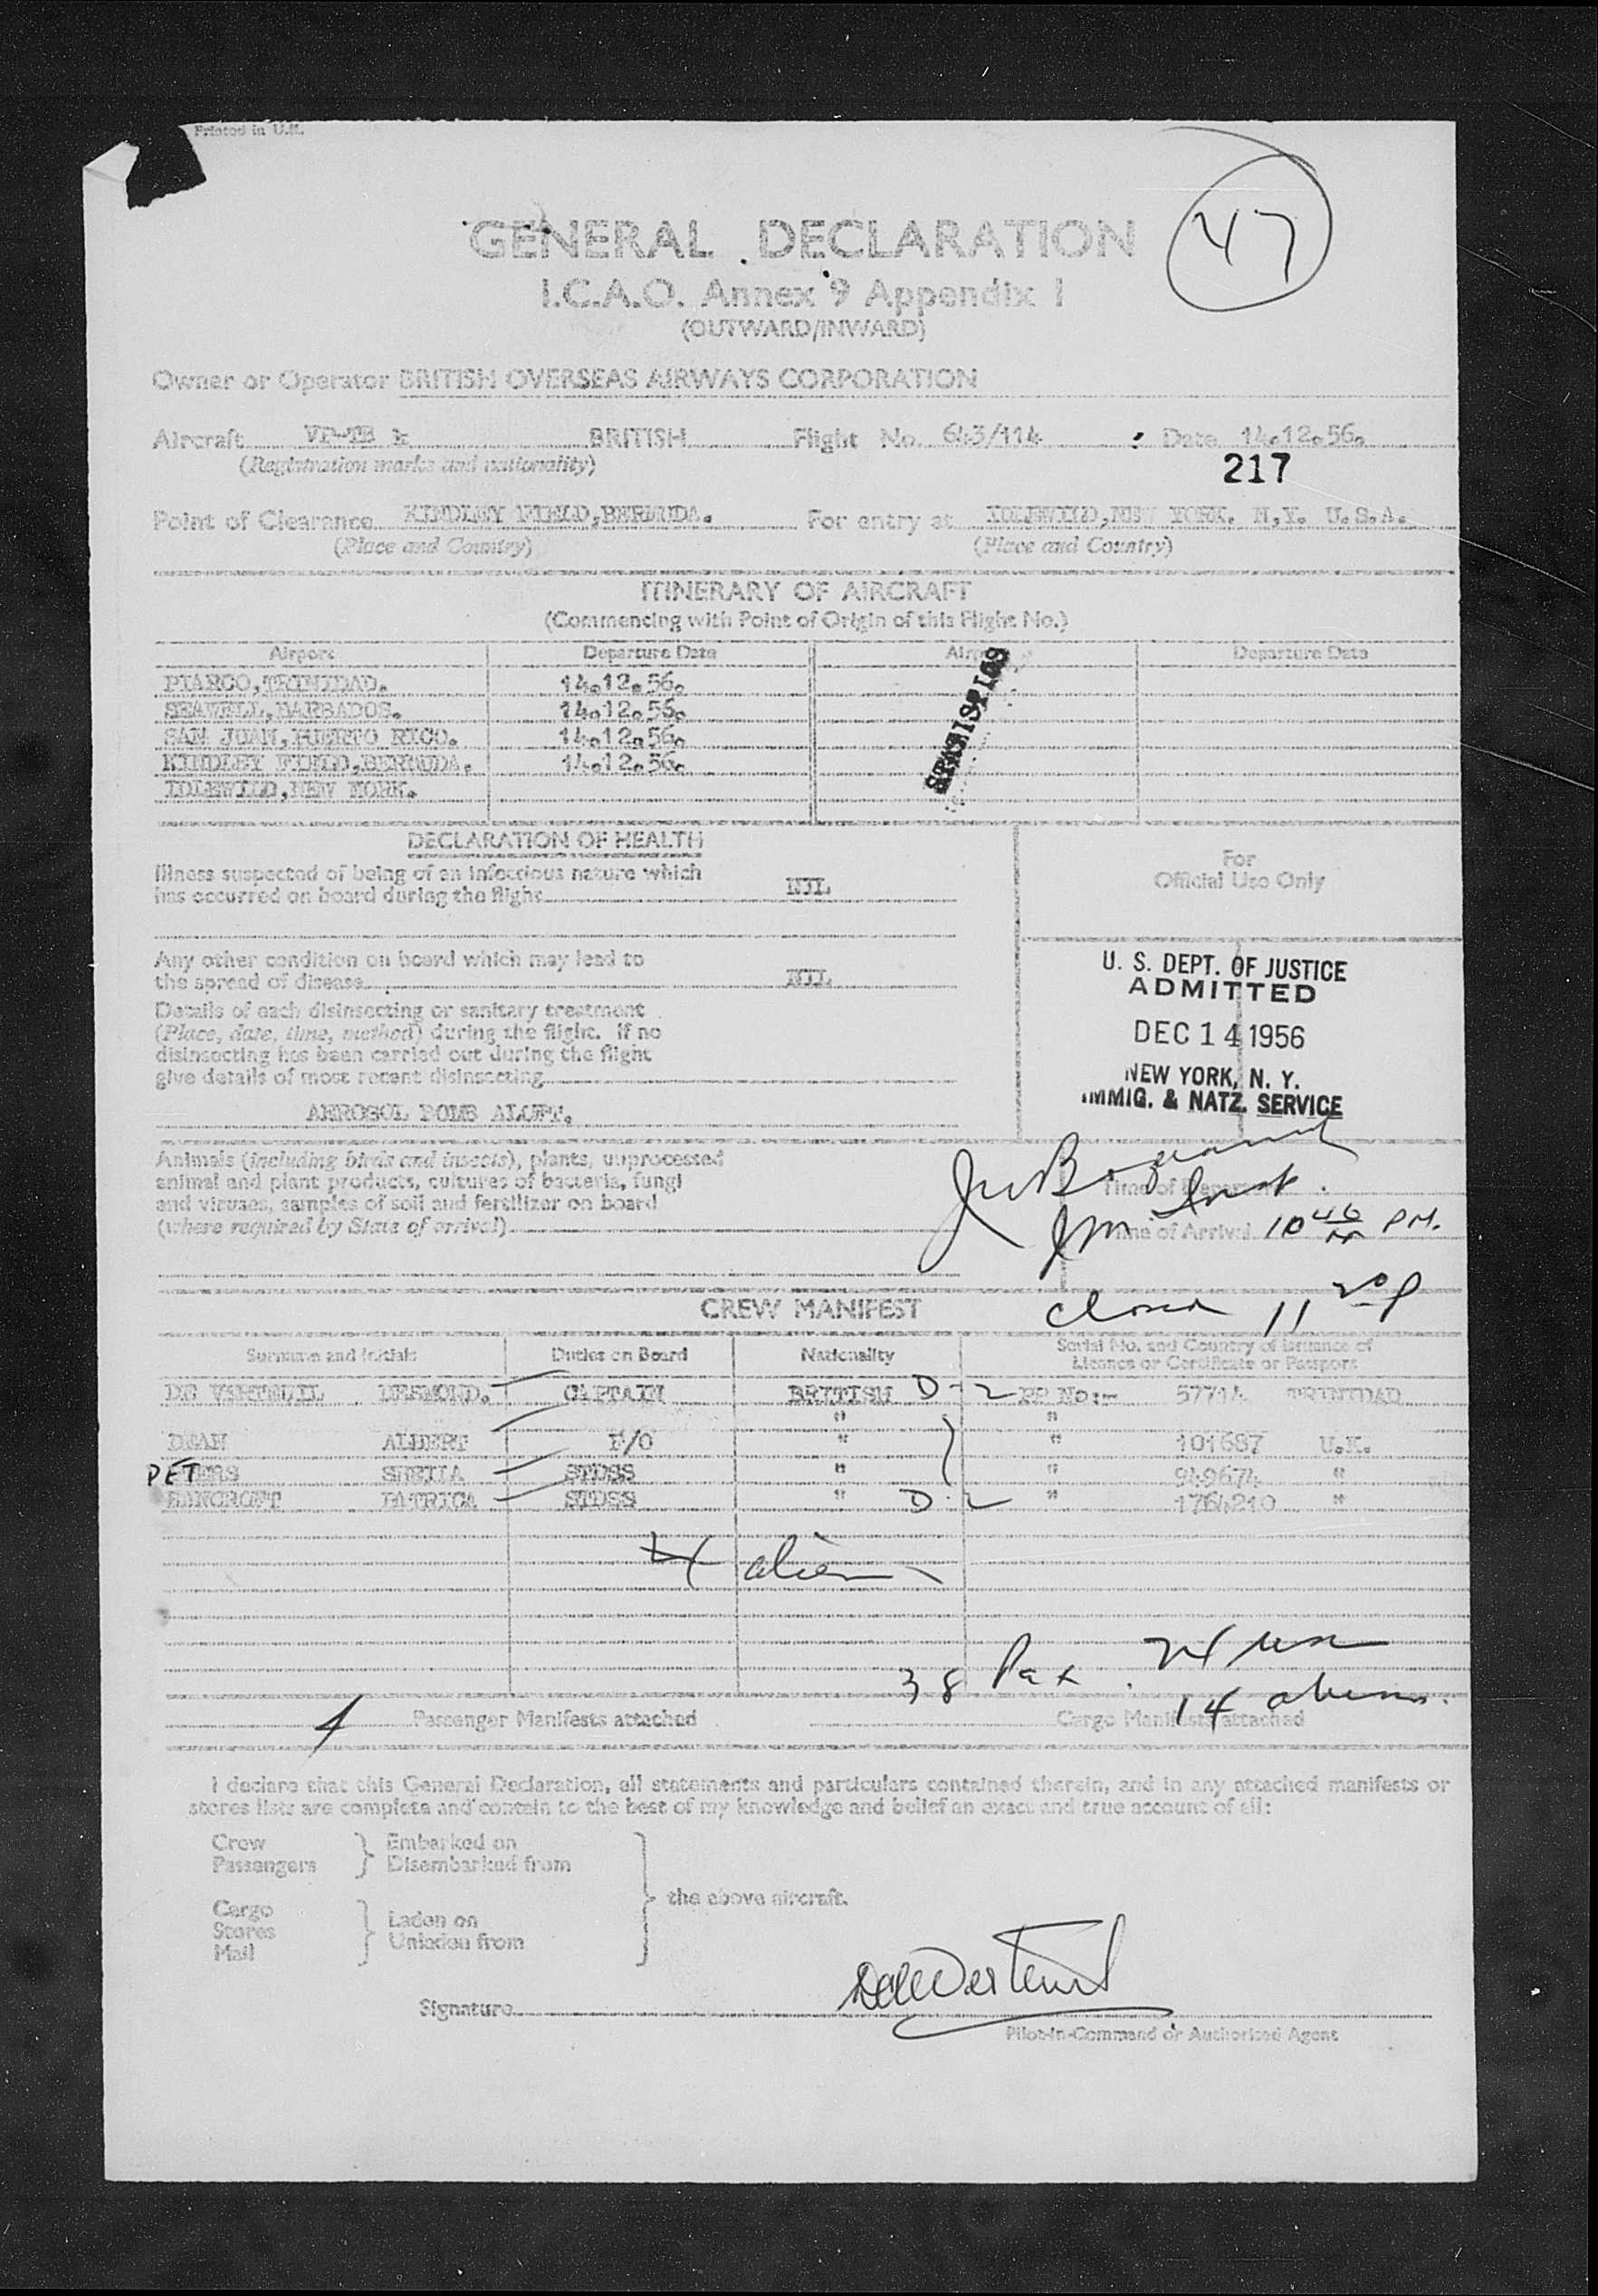 Printed in U.K.
47
GENERAL DECLARATION
I.C.A.O. Annex 9 Appendix I
(OUTWARD/INWARD)
Owner or Operator BRITISH OVERSEAS AIRWAYS CORPORATION
Aircraft VP-TB BRITISH Flight No. 643/114 Date 14.12.56.
(Registration marks and nationality)
217
Point of Clearance KINDLEY FIELD,BERMUDA. For entry at IDLEWILD,NEW YORK. N.Y. U.S.A.
(Place and Country) (Place and Country)
ITINERARY OF AIRCRAFT
(Commencing with Point of Origin of this Flight No.)
Airport Departure Date Airport Departure Date
PIARCO,TRINIDAD. 14.12.56.
SEAWELL,BARBADOS. 14.12.56.
SAN JUAN,PUERTO RICO. 14.12.56.
KINDLEY FIELD,BERMUDA. 14.12.56.
IDLEWILD,NEW YORK.
DECLARATION OF HEALTH
Illness suspected of being of an infectious nature which
has occurred on board during the flight NIL
For
Official Use Only
Any other condition on board which may lead to
the spread of disease NIL
Details of each disinsecting or sanitary treatment
(Place, date, time, method) during the flight. If no
disinsecting has been carried out during the flight
give details of most recent disinsecting
AEROSOL BOMB ALOFT.
U. S. DEPT. OF JUSTICE
ADMITTED
DEC 14 1956
NEW YORK, N. Y.
IMMIG. & NATZ. SERVICE
Animals (including birds and insects), plants, unprocessed
animal and plant products, cultures of bacteria, fungi
and viruses, samples of soil and fertilizer on board
(where required by State of arrival)
Time of Departure
Time of Arrival 10 46 PM.
closed 11 20 P
CREW MANIFEST
Surname and Initials Duties on Board Nationality Serial No. and Country of Issuance of
Licence or Certificate or Passport
DE VERTEUIL DESMOND. CAPTAIN BRITISH D-2 PP No:- 57714 TRINIDAD
" "
DEAN ALBERT F/O " " 101687 U.K.
PETERS SHEILA STDSS " " 949674 "
BANCROFT PATRICA STDSS " D-2 " 1764210 "
4 aliens
38 Pax. 24 usc
14 aliens.
1 Passenger Manifests attached Cargo Manifests attached
I declare that this General Declaration, all statements and particulars contained therein, and in any attached manifests or
stores lists are complete and contain to the best of my knowledge and belief an exact and true account of all:
Crew
Passengers
Embarked on
Disembarked from
Cargo
Stores
Mail
Laden on
Unladen from
the above aircraft.
Signature
Pilot-in-Command or Authorised Agent